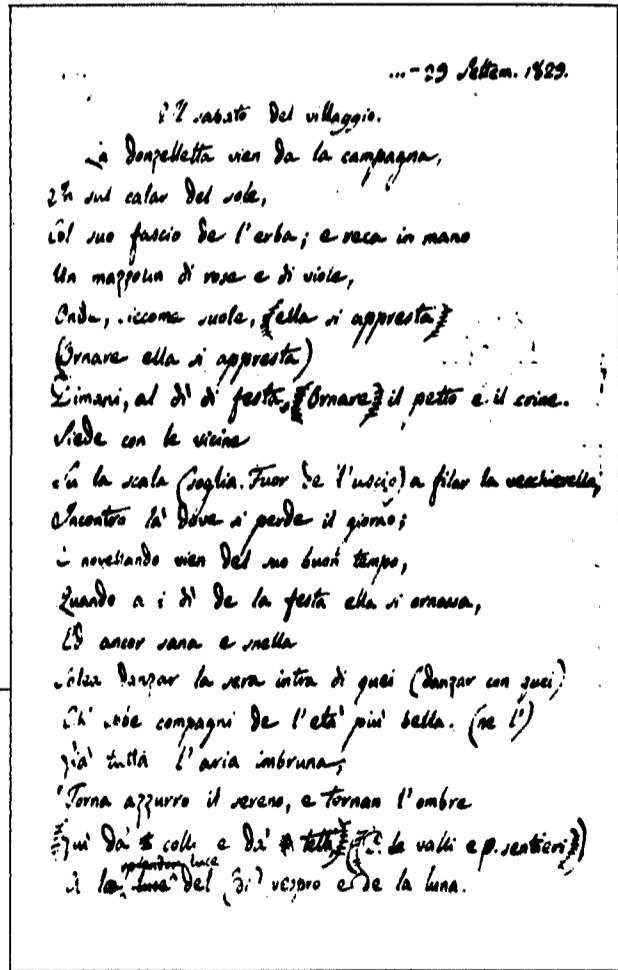 ...-29 Settem. 1829.
Il sabato del villaggio.
La donzelletta vien da la campagna,
In sul calar del sole,
Col suo fascio de l'erba; e reca in mano
Un mazzolin di rose e di viole,
Onde, siccome suole, {ella si appresta}
(Ornare ella si appresta)
Dimani, al dì di festa, {Ornare} il petto e il crine.
Siede con le vicine
Su la scala (soglia. Fuor de l'uscio) a filar la vecchierella,
Incontro là dove si perde il giorno;
E novellando vien del suo buon tempo,
Quando a i dì de la festa ella si ornava,
Ed ancor sana e snella
Solea danzar la sera intra di quei (danzar con quei)
Ch' ebbe compagni de l'età più bella. (ne l')
Già tutta l'aria imbruna,
Torna azzurro il sereno, e tornan l'ombre
Giù da' colli e da' tetti (de valli e p. sentieri)
splendor luce
A la luce del (di) vespro e de la luna.